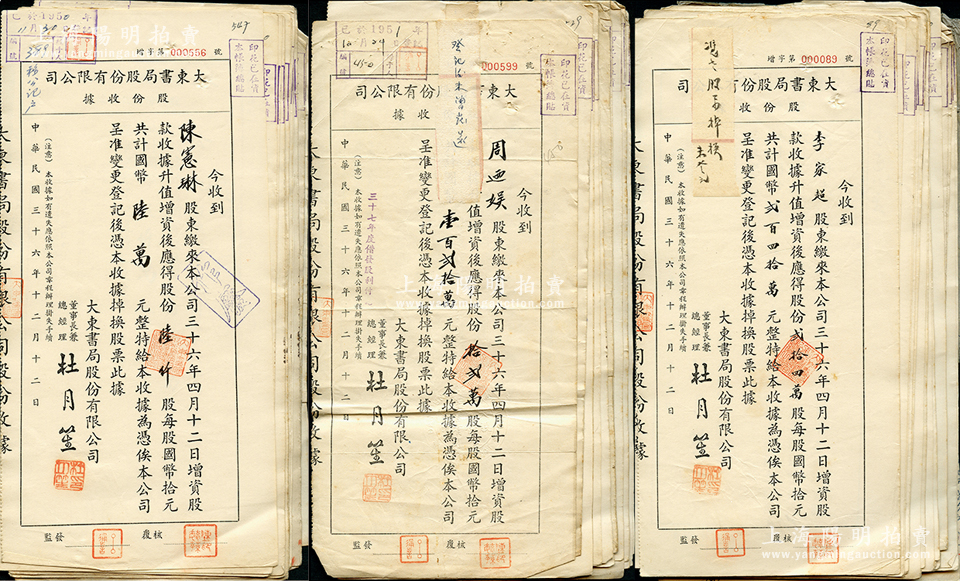 547
已於1950年
11月30日
增字第 000556 號
印花已在資本帳簿總貼
大東書局股份有限公司
股份收據
今收到
陳憲琳 股東繳來本公司三十六年四月十二日增資股
款收據升值增資後應得股份 陸仟 股每股國幣拾元
共計國幣 陸萬 元整特給本收據為憑俟本公司
呈准變更登記後憑本收據掉換股票此據
大東書局股份有限公司
董事長兼總經理 杜月笙
(注意) 本收據如有遺失應依照本公司章程辦理掛失手續
中華民國三十六年十二月十二日
監發
覆核
大東書局股份有限公司股份收據
已於1951年
12月24日
450
000599 號
印花已在資本帳簿總貼
大東 股份有限公司
收據
今收到
周迺娛 股東繳來本公司三十六年四月十二日增資股
值增資後應得股份 拾貳萬 股每股國幣拾元
壹百貳拾萬 元整特給本收據為憑俟本公司
呈准變更登記後憑本收據掉換股票此據
大東書局股份有限公司
董事長兼總經理 杜月笙
三十七年度
(注意) 本收據如有遺失應依照本公司章程辦理掛失手續
中華民國三十六年十二月十二日
覆核
大東書局股份有限公司股份收據
89
增字第 000089 號
印花已在資本帳簿總貼
大東書局股份有限公司
股份收
今收到
李家超 股東繳來本公司三十六年四月十二日增資股
款收據升值增資後應得股份 貳拾四萬 股每股國幣拾元
共計國幣 貳百四拾萬 元整特給本收據為憑俟本公司
呈准變更登記後憑本收據掉換股票此據
大東書局股份有限公司
董事長兼總經理 杜月笙
(注意) 本收據如有遺失應依照本公司章程辦理掛失手續
中華民國三十六年十二月十二日
監發
覆核
大東書局股份有限公司股份收據
上海陽明拍賣
www.yangmingauction.com